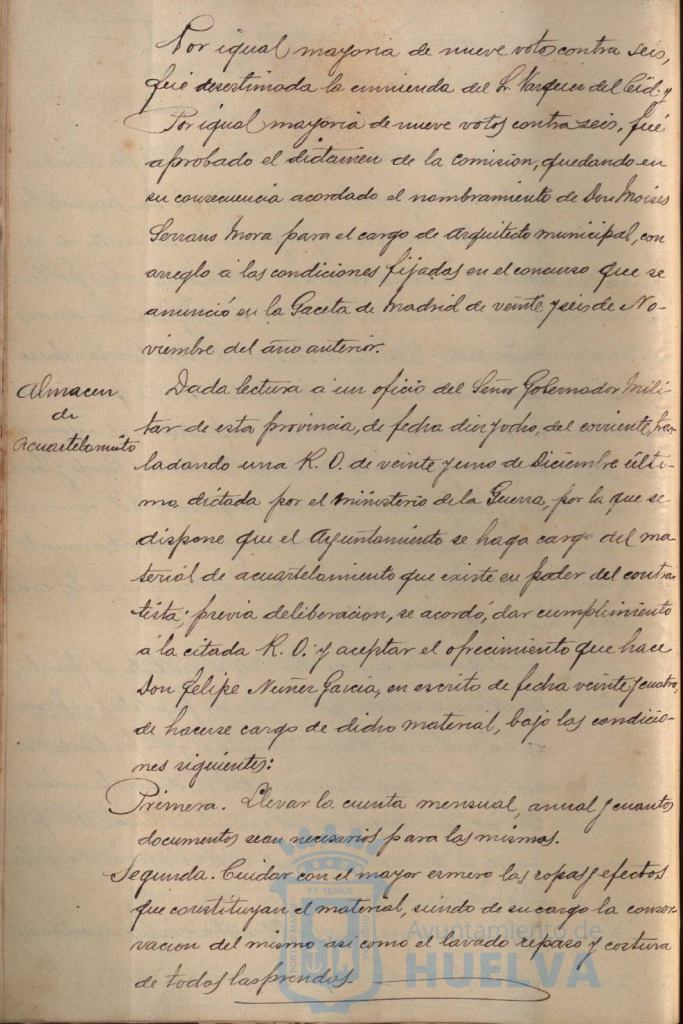 Por igual mayoria de nueve votos contra seis,
fué desestimada la enmienda del Sr. Vazquez del Cid: y
Por igual mayoria de nueve votos contra seis, fué
aprobado el dictámen de la comision, quedando en
su consecuencia acordado el nombramiento de Don Moises
Serrano Mora para el cargo de Arquitecto municipal, con
arreglo á las condiciones fijadas en el concurso que se
anunció en la Gaceta de Madrid de veinte y seis de No-
viembre del año anterior.
Almacen
de
Acuartelamíto
Dada lectura a un oficio del Señor Gobernador Mili-
tar de esta provincia, de fecha diez y ocho, del corriente, tras-
ladando una R. O. de veinte y uno de Diciembre últi-
mo, dictada por el Ministerio de la Guerra, por la que se
dispone que el Ayuntamiento se haga cargo del ma-
terial de acuartelamiento que existe en poder del contra-
tista; previa deliberacion, se acordó, dar cumplimiento
á la citada R. O. y aceptar el ofrecimiento que hace
Don Felipe Nuñez Garcia, en escrito de fecha veinte y cuatro,
de hacerse cargo de dicho material, bajo las condicio-
nes siguientes:
Primera. Llevar la cuenta mensual, anual y cuantos
documentos sean necesarios para las mismas.
Segunda. Cuidar con el mayor esmero las ropas y efectos
que constituyan el material, siendo de su cargo la conser-
vacion del mismo asi como el lavado repaso y costura
de todas las prendas.
Ayuntamiento de
HUELVA